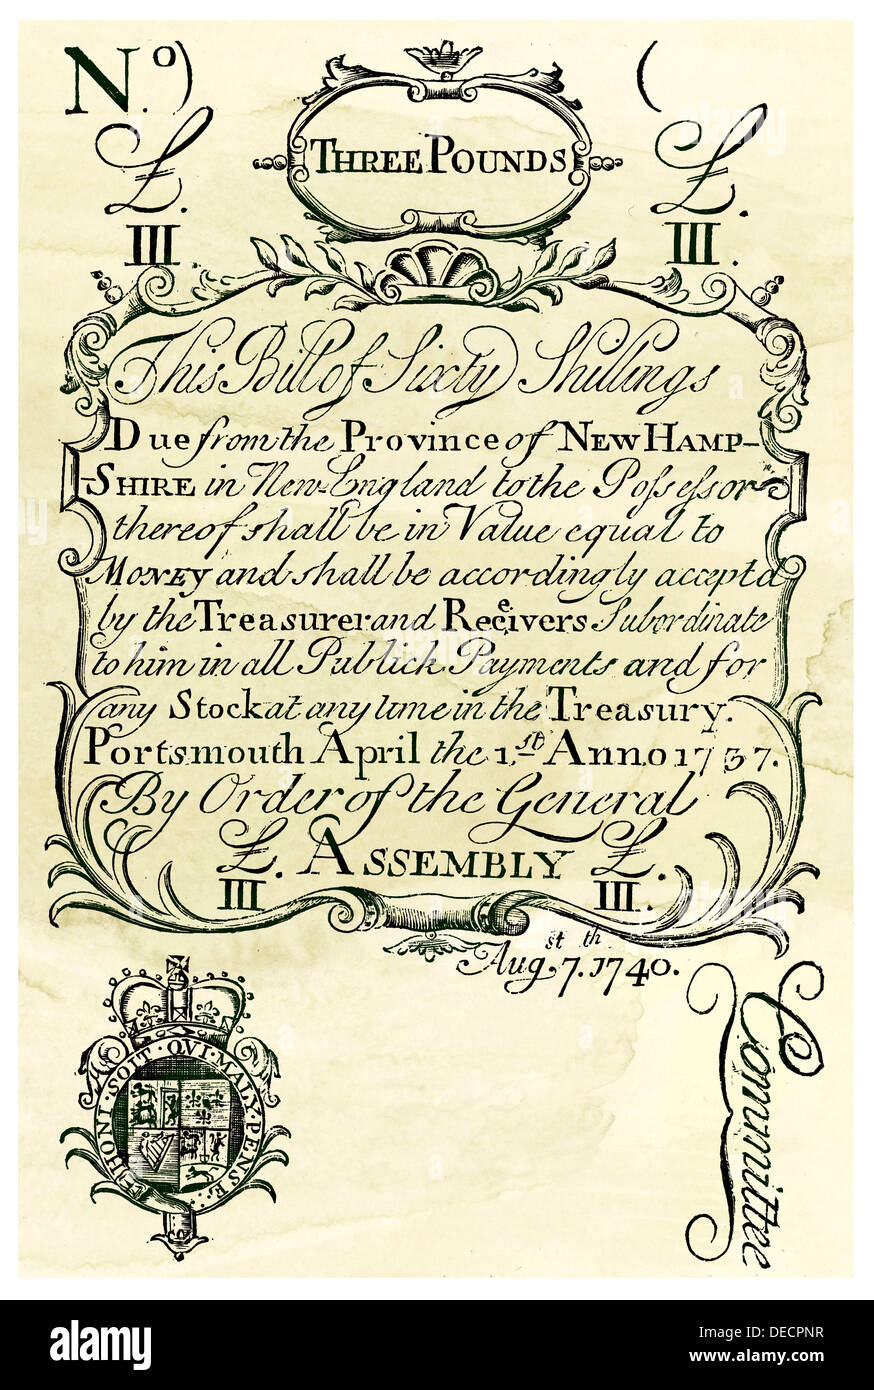 No) (
THREE POUNDS
£. £.
III. III.
This Bill of Sixty Shillings
Due from the Province of NEW HAMP-
-SHIRE in New-England to the Possessor
thereof shall be in Value equal to
MONEY and shall be accordingly accepted
by the Treasurer and Receivers Subordinate
to him in all Publick Payments and for
any Stock at any time in the Treasury.
Portsmouth April the 1.st Anno 1737.
By Order of the General
£. ASSEMBLY £.
III III.
Aug.st 7.th 1740.
HONI·SOIT·QVI·MALY·PENSE
Committee
alamy
Image ID: DECPNR
www.alamy.com